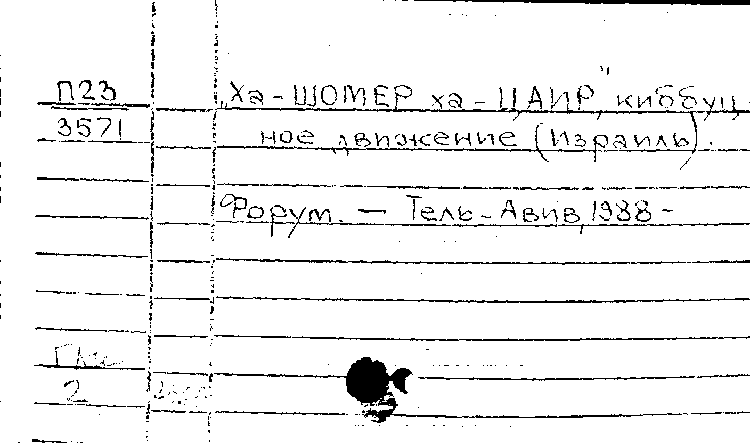 П23
3571
„Ха-ШОМЕР ха-ЦАИР," киббуц
ное движение (Израиль).
Форум. — Тель-Авив, 1988-
2